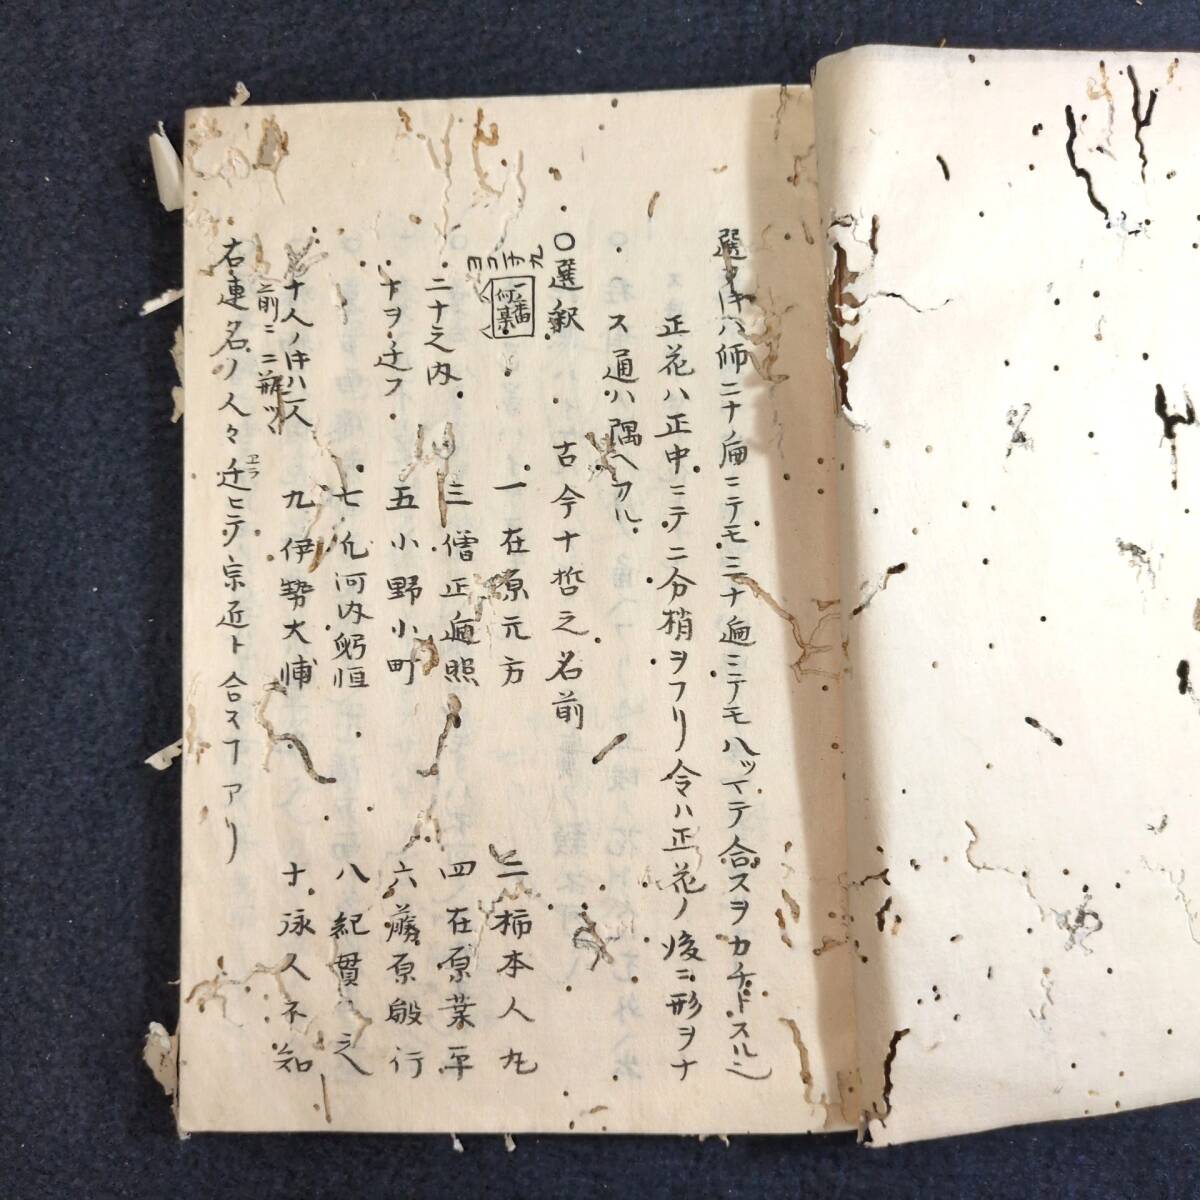 選タ圷ハ師ニナノ扁ニテモ三ナ遍ニテモハッマテ合スヲカチトスル也
正花ハ正中ニテ二分梢ヲフリ令ハ正花ノ後ニ形ヲナ
ス通ハ隅ヘフル
〇選釈 古今十哲之名前
一番何某 一 在原元方 二 柿本人丸
二十之内 三 僧正遍照 四 在原業平
十ヲ迁フ 五 小野小町 六 藤原敏行
七 凡河内躬恒 八 紀貫之
十人ノ圷ハ一人前ニ二瓶ツヽ 九 伊勢大輔 十 詠人不知
右連名ノ人々迁ヒテ宗近ト合スヿアリ